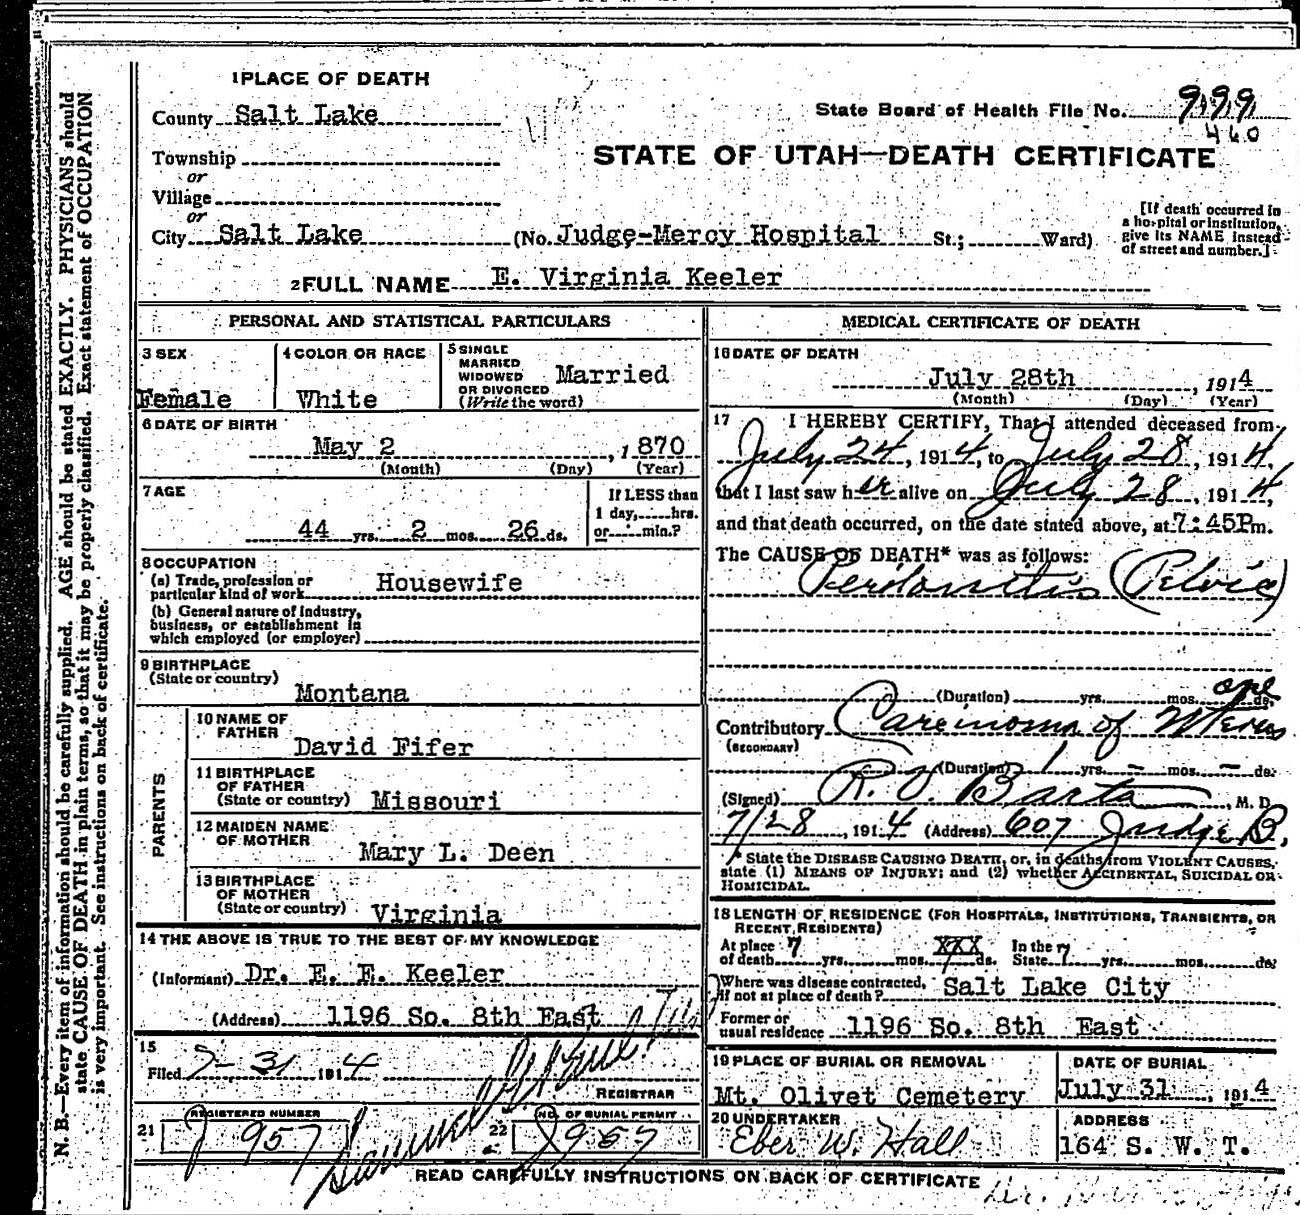 1 PLACE OF DEATH
County Salt Lake
State Board of Health File No. 999
460
Township
or
Village
or
City Salt Lake (No. Judge-Mercy Hospital St.; Ward)
STATE OF UTAH—DEATH CERTIFICATE
[If death occurred in
a hospital or institution,
give its NAME instead
of street and number.]
2 FULL NAME E. Virginia Keeler
PERSONAL AND STATISTICAL PARTICULARS
3 SEX
Female
4 COLOR OR RACE
White
5 SINGLE
MARRIED
WIDOWED
OR DIVORCED
(Write the word)
Married
6 DATE OF BIRTH
May 2, 1870
(Month) (Day) (Year)
7 AGE
44 yrs. 2 mos. 26 ds.
If LESS than
1 day, hrs.
or min.?
8 OCCUPATION
(a) Trade, profession or
particular kind of work Housewife
(b) General nature of industry,
business, or establishment in
which employed (or employer)
9 BIRTHPLACE
(State or country)
Montana
PARENTS
10 NAME OF
FATHER
David Fifer
11 BIRTHPLACE
OF FATHER
(State or country) Missouri
12 MAIDEN NAME
OF MOTHER
Mary L. Deen
13 BIRTHPLACE
OF MOTHER
(State or country) Virginia
14 THE ABOVE IS TRUE TO THE BEST OF MY KNOWLEDGE
(Informant) Dr. E. E. Keeler
(Address) 1196 So. 8th East
15
Filed 7-31 1914
REGISTRAR
21
REGISTERED NUMBER
J 957
22
NO. OF BURIAL PERMIT
J957
MEDICAL CERTIFICATE OF DEATH
16 DATE OF DEATH
July 28th, 1914
(Month) (Day) (Year)
17 I HEREBY CERTIFY, That I attended deceased from
July 24, 1914, to July 28, 1914,
that I last saw her alive on July 28, 1914,
and that death occurred, on the date stated above, at 7:45P m.
The CAUSE OF DEATH* was as follows:
Peritonitis (Pelvic)
(Duration) yrs. mos. one ds.
Contributory Carcinoma of Uterus
(SECONDARY)
(Duration) 1 yrs. – mos. – ds.
(Signed) R. V. Barta, M. D.
7/28, 1914 (Address) 607 Judge B.
* State the DISEASE CAUSING DEATH, or, in deaths from VIOLENT CAUSES,
state (1) MEANS OF INJURY; and (2) whether ACCIDENTAL, SUICIDAL OR
HOMICIDAL.
18 LENGTH OF RESIDENCE (FOR HOSPITALS, INSTITUTIONS, TRANSIENTS, OR
RECENT RESIDENTS)
At place 7 XXX In the 7
of death yrs. mos. ds. State yrs. mos. ds.
Where was disease contracted,
if not at place of death? Salt Lake City
Former or
usual residence 1196 So. 8th East
19 PLACE OF BURIAL OR REMOVAL
Mt. Olivet Cemetery
DATE OF BURIAL
July 31, 1914
20 UNDERTAKER
Eber W. Hall
ADDRESS
164 S. W. T.
READ CAREFULLY INSTRUCTIONS ON BACK OF CERTIFICATE
N. B.—Every item of information should be carefully supplied. AGE should be stated EXACTLY. PHYSICIANS should
state CAUSE OF DEATH in plain terms, so that it may be properly classified. Exact statement of OCCUPATION
is very important. See instructions on back of certificate.